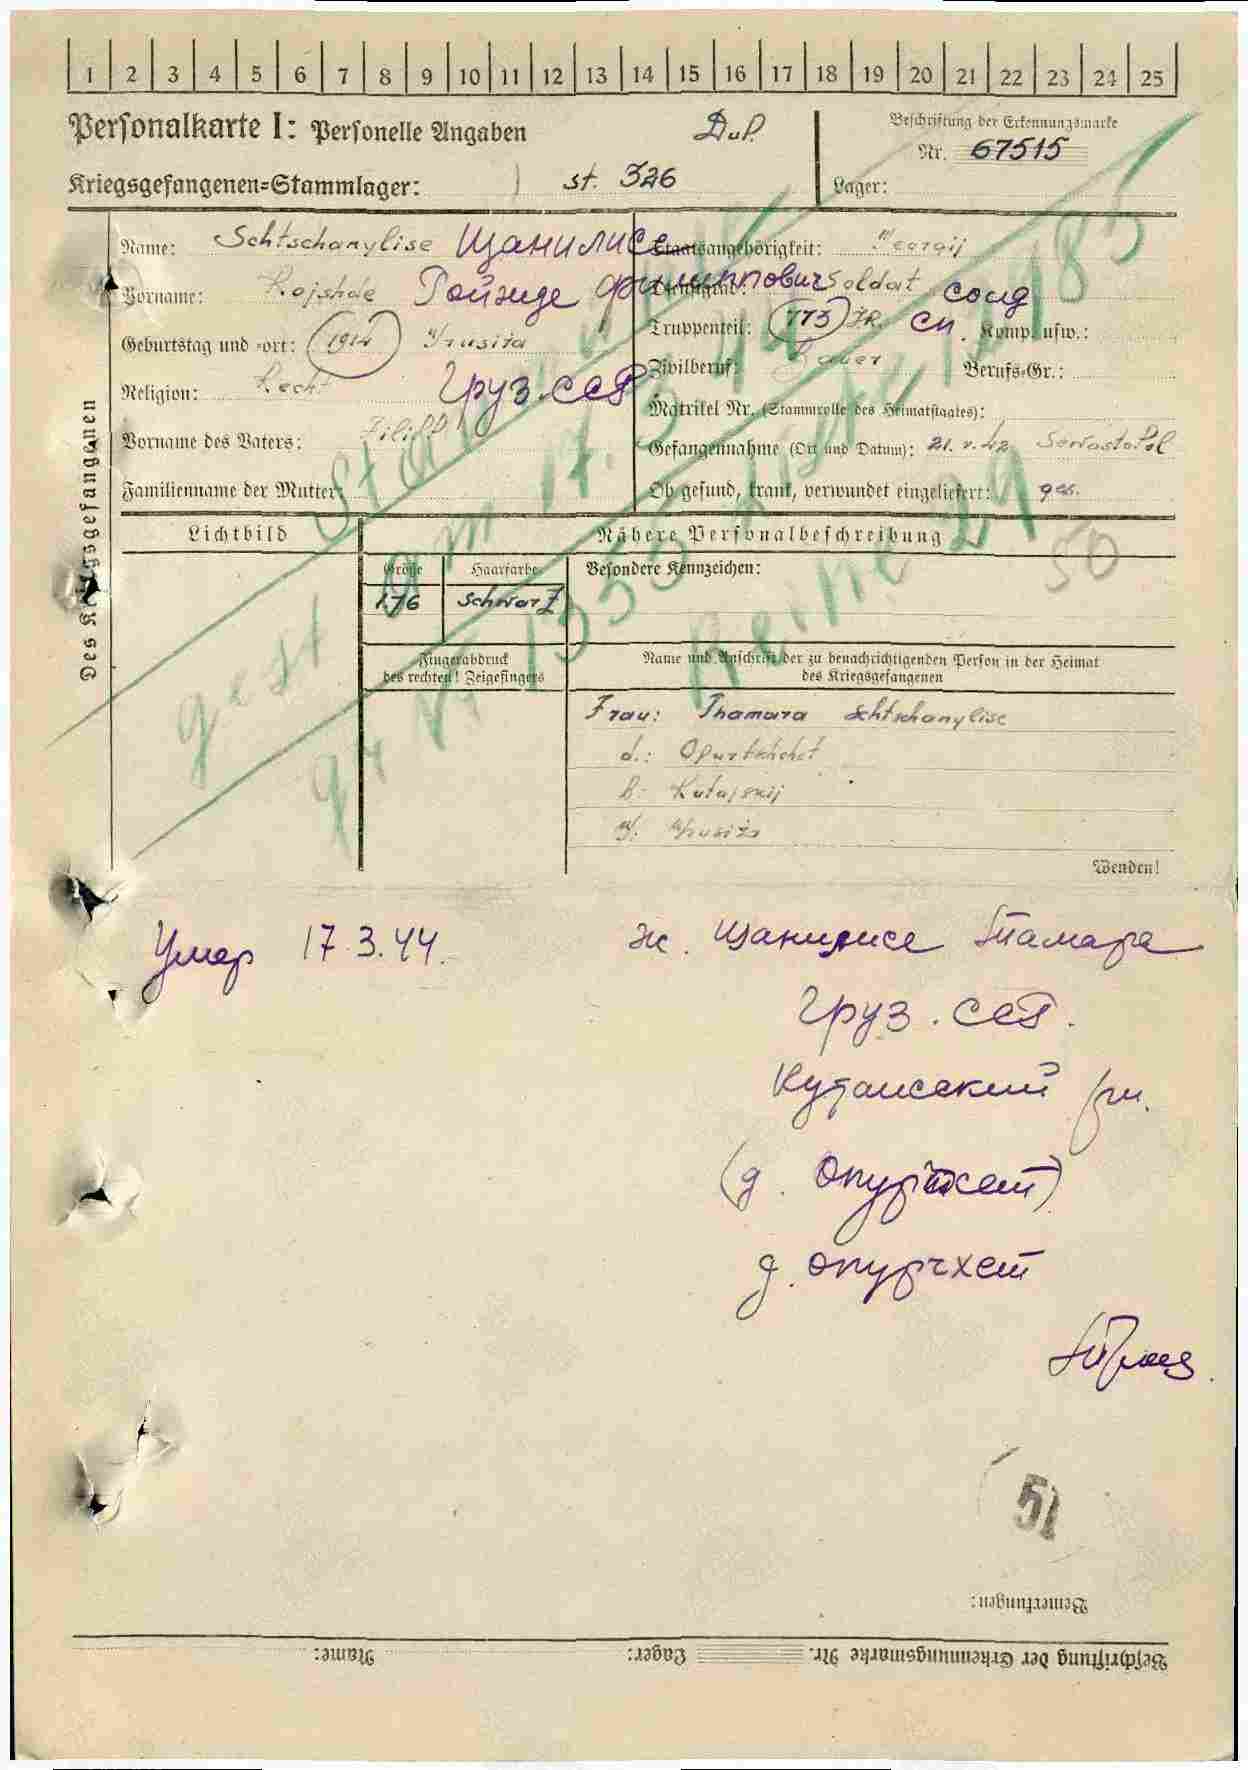 1 2 3 4 5 6 7 8 9 10 11 12 13 14 15 16 17 18 19 20 21 22 23 24 25
Personalkarte I: Personelle Angaben
Dup.
Beschriftung der Erkennungsmarke
Nr. 67515
Kriegsgefangenen-Stammlager: st. 326
Lager:
Des Kriegsgefangenen
Name: Schtschanylise Щанилисе
Staatsangehörigkeit:
Vorname: Rojshde Ройжде Филиппович
Dienstgrad: Soldat солд
Truppenteil: 773 JR. сп. Komp. usw.:
Geburtstag und -ort: 1914 Grusija
Zivilberuf: Bauer Berufs-Gr.:
Religion: Recht Груз. ССР
Matrikel Nr. (Stammrolle des Heimatstaates):
Vorname des Vaters: Filipp
Gefangennahme (Ort und Datum): 21.V.42 Sewastopol
Familienname der Mutter:
Ob gesund, krank, verwundet eingeliefert: ges.
gest am 17.3.44
Reihe 29
50
Lichtbild
Nähere Personalbeschreibung
Größe
Haarfarbe
Besondere Kennzeichen:
1.76
schwarz
Fingerabdruck
des rechten! Zeigefingers
Name und Anschrift der zu benachrichtigenden Person in der Heimat
des Kriegsgefangenen
Frau: Thamara Schtschanylise
d.: Opurtschchet
R: Kutajskij
G. Grusija
Wenden!
Умер 17.3.44.
ж. Щанилисе Тамара
Груз. ССР.
Кутаисский рн.
(д. Опуртхет)
д. Опурчхет
51
Bemerkungen:
Beschriftung der Erkennungsmarke Nr. Lager: Name: